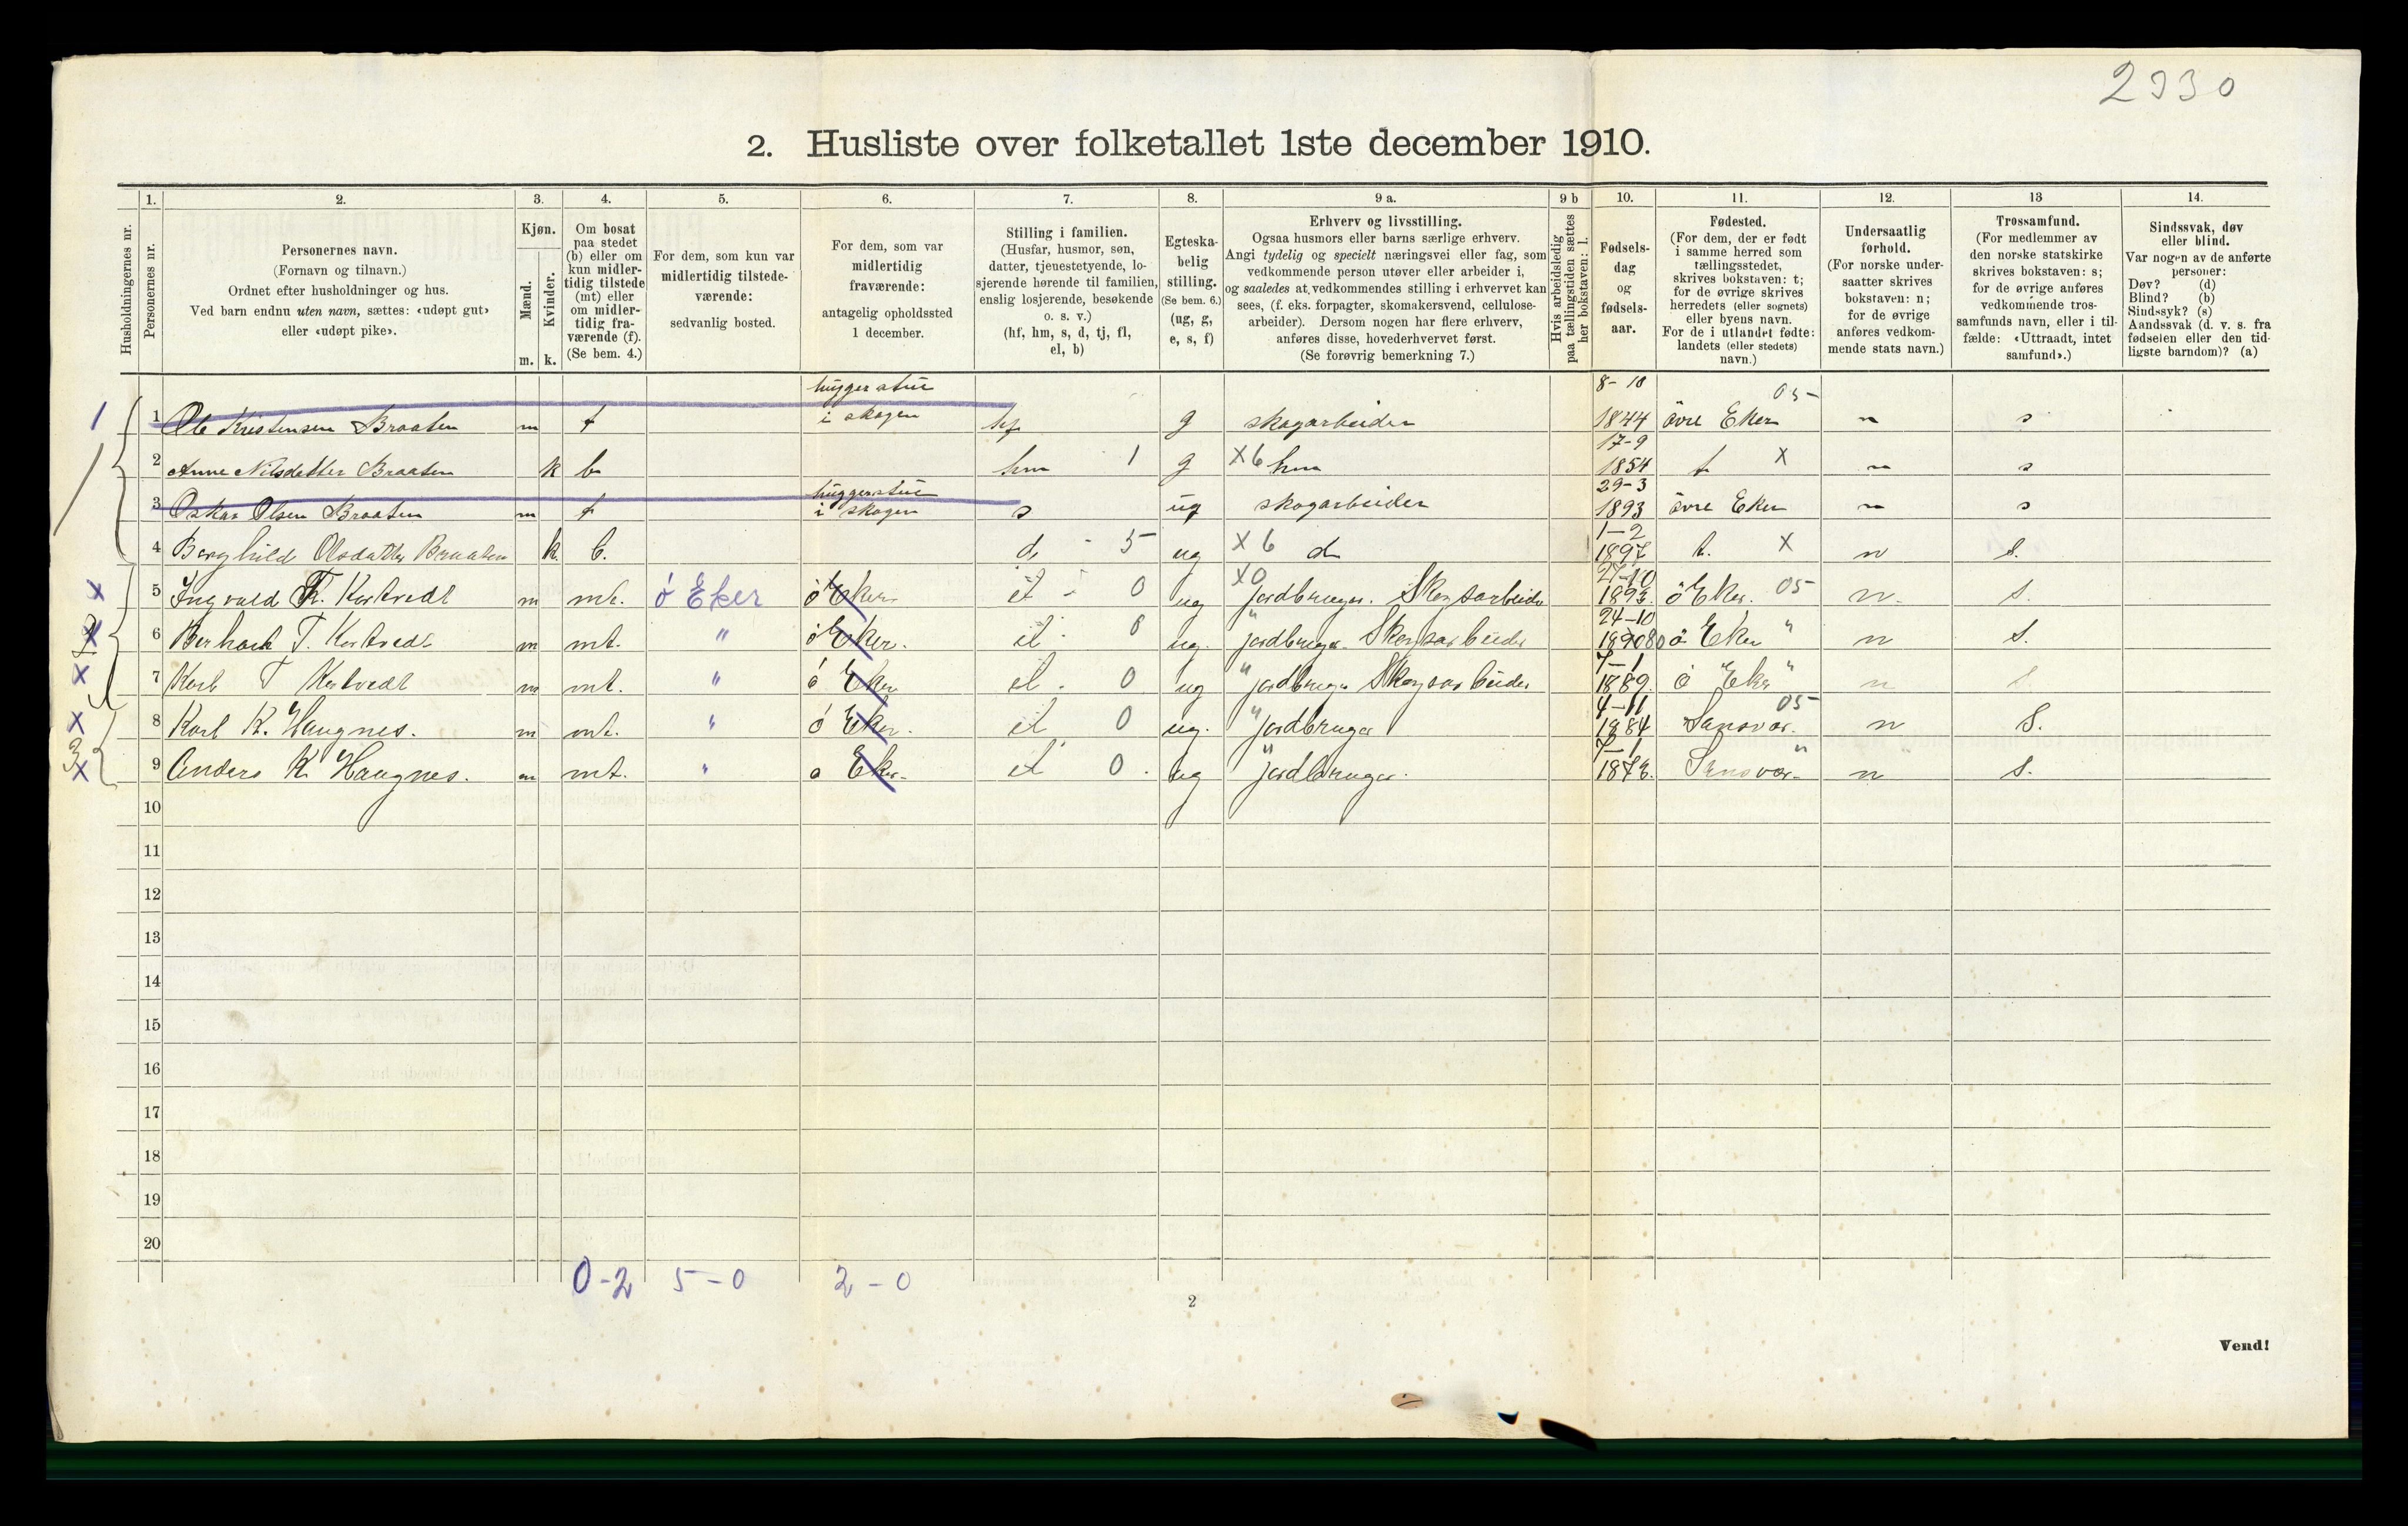 2330
2. Husliste over folketallet 1ste december 1910.
Husholdningernes nr.
1. Personernes nr.
2. Personernes navn. (Fornavn og tilnavn.) Ordnet efter husholdninger og hus. Ved barn endnu uten navn, sættes: «udøpt gut» eller «udøpt pike».
3. Kjøn. Mænd. m. Kvinder. k.
4. Om bosat paa stedet (b) eller om kun midlertidig tilstede (mt) eller om midlertidig fraværende (f). (Se bem. 4.)
5. For dem, som kun var midlertidig tilstedeværende: sedvanlig bosted.
6. For dem, som var midlertidig fraværende: antagelig opholdssted 1 december.
7. Stilling i familien. (Husfar, husmor, søn, datter, tjenestetyende, losjerende hørende til familien, enslig losjerende, besøkende o. s. v.) (hf, hm, s, d, tj, fl, el, b)
8. Egteskabelig stilling. (Se bem. 6.) (ug, g, e, s, f)
9 a. Erhverv og livsstilling. Ogsaa husmors eller barns særlige erhverv. Angi tydelig og specielt næringsvei eller fag, som vedkommende person utøver eller arbeider i, og saaledes at vedkommendes stilling i erhvervet kan sees, (f. eks. forpagter, skomakersvend, cellulosearbeider). Dersom nogen har flere erhverv, anføres disse, hovederhvervet først. (Se forøvrig bemerkning 7.)
9 b Hvis arbeidsledig paa tællingstiden sættes her bokstaven: l.
10. Fødselsdag og fødselsaar.
11. Fødested. (For dem, der er født i samme herred som tællingsstedet, skrives bokstaven: t; for de øvrige skrives herredets (eller sognets) eller byens navn. For de i utlandet fødte: landets (eller stedets) navn.)
12. Undersaatlig forhold. (For norske undersaatter skrives bokstaven: n; for de øvrige anføres vedkommende stats navn.)
13 Trossamfund. (For medlemmer av den norske statskirke skrives bokstaven: s; for de øvrige anføres vedkommende trossamfunds navn, eller i tilfælde: «Uttraadt, intet samfund».)
14. Sindssvak, døv eller blind. Var nogen av de anførte personer: Døv? (d) Blind? (b) Sindssyk? (s) Aandssvak (d. v. s. fra fødselen eller den tidligste barndom)? (a)
1 1 Ole Kristensen Braaten m f huggerstue i skogen hf g skogarbeider 8-10 1844 övre Eker 05 n s
2 Anne Nilsdatter Braaten k b hm 1 g X6 hm 17-9 1854 t X n s
3 Oskar Olsen Braaten m f huggerstue i skogen s ug skogarbeider 29-3 1893 övre Eker n s
4 Borghild Olsdatter Braaten k. b. d. 5 ug X 6 d 1-2 1897 t. X n s.
X 5 Ingvald K. Kortvedt m mt. ö Eker ö Eker el 0 ug X0 Jordbruger. Skogsarbeider 27-10 1893. ö Eker. 05 n. s.
X 6 T. Kortvedt m mt. " ö Eker. el 0 ug. jordbruger Skogsarbeider 24-10 ö Eker " n s.
X 7 Karl T Kortvedt m mt. " ö Eker el 0 ug " jordbruger Skogsarbeider 7-1 1889. ö Eker " n s
X 8 Karl K. Haugnes. m mt. " ö Eker. el 0 ug. " jordbruger 4-11 1884 Sansvær. 05 n s.
3 X 9 Anders K. Haugnes. m mt. " ö Eker. el 0. ug " jordbruger. 7-1 Sansvær. " n s.
10
11
12
13
14
15
16
17
18
19
20
0-2 5-0 2-0
2
Vend!